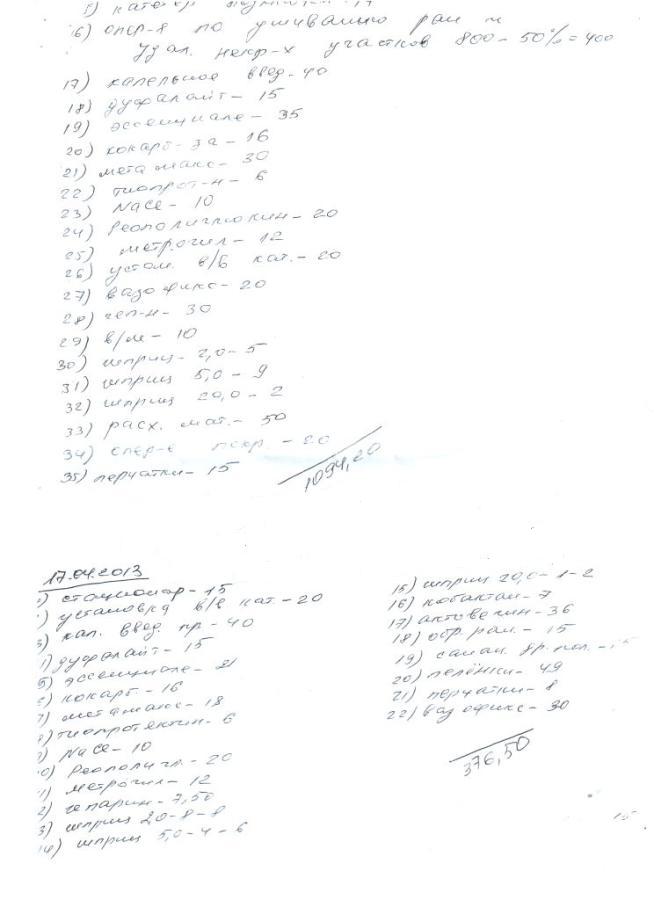 16) опер-я по ушиванию ран и
удал. некр-х участков 800-50%=400
17) капельное введ-40
18) дуфалайт-15
19) эссенциале-35
20) кокарб-за-16
21) метамакс-30
22) тиопрот-н-6
23) NaCe-10
24) Реополиглюкин-20
25) метрогил-12
26) устан. в/в кат.-20
27) вазофикс-20
28) геп-н-30
29) в/м-10
30) шприц-2,0-5
31) шприц 5,0-9
32) шприц 20,0-2
33) расх. мат.-50
34) -20
35) перчатки-15
1094,20
17.04.2013
стационар-15
установка в/в кат.-20
кап. введ. пр-40
дуфалайт-15
5) эссенциале-21
кокарб-16
метамакс-18
тиопротектин-6
NaCe-10
Реополигл.-20
метрогил-12
2) гепарин-7,50
3) шприц 2,0-8-8
14) шприц 5,0-4-6
15) шприц 20,0-1-2
16) кобактан-7
17) актовегин-36
18) обр. ран.-15
19)
20) пелёнки-49
21) перчатки-8
22) вазофикс-30
376,50
15